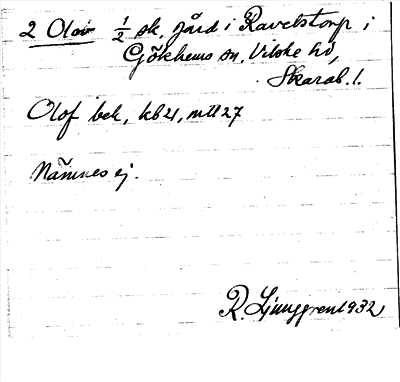 2 Olov ½ sk. jård i Ravelstorp i
Gökhems sn, Vilske hd,
Skarab. l.
Olof bek, kb 21, mtl 27
Nämnes ej.
R. Ljunggren 1932